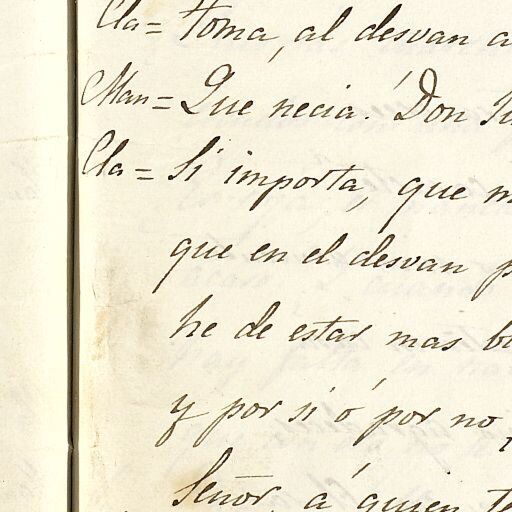 Cla= Toma, al desvan a
Man= Que necia! Don
Cla= Si importa, que m
que en el desvan p
he de estar mas b
y por si ó por no,
Señor, á quien te